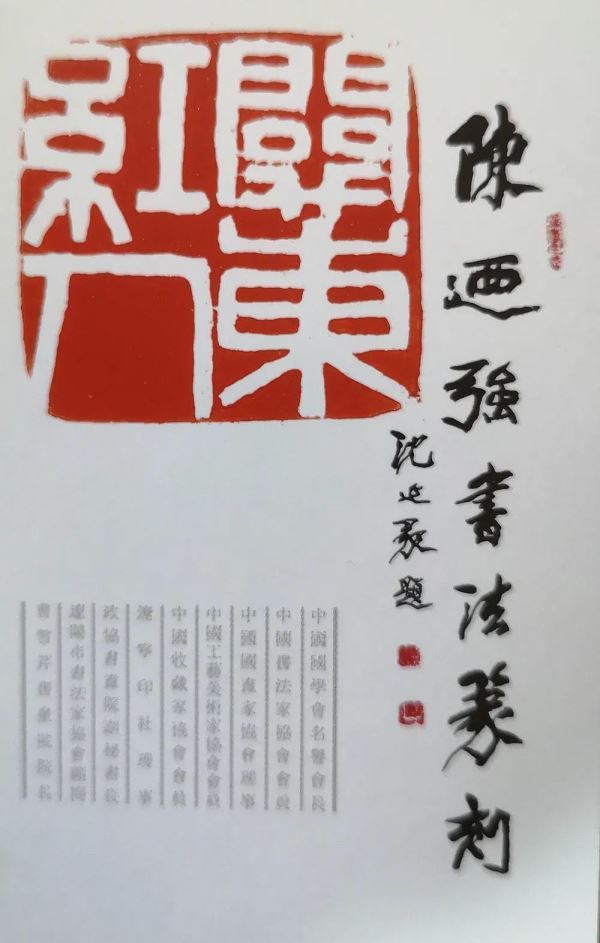 陳迺強書法篆刻
關東
紅人
沈延毅題
中國國學會名譽會長
中國書法家協會會員
中國國畫家協會理事
中國工藝美術家協會會員
中國收藏家協會會員
遼寧印社理事
政協書畫院副秘書長
遼陽市書法家協會顧問
曹雪芹書畫院院長